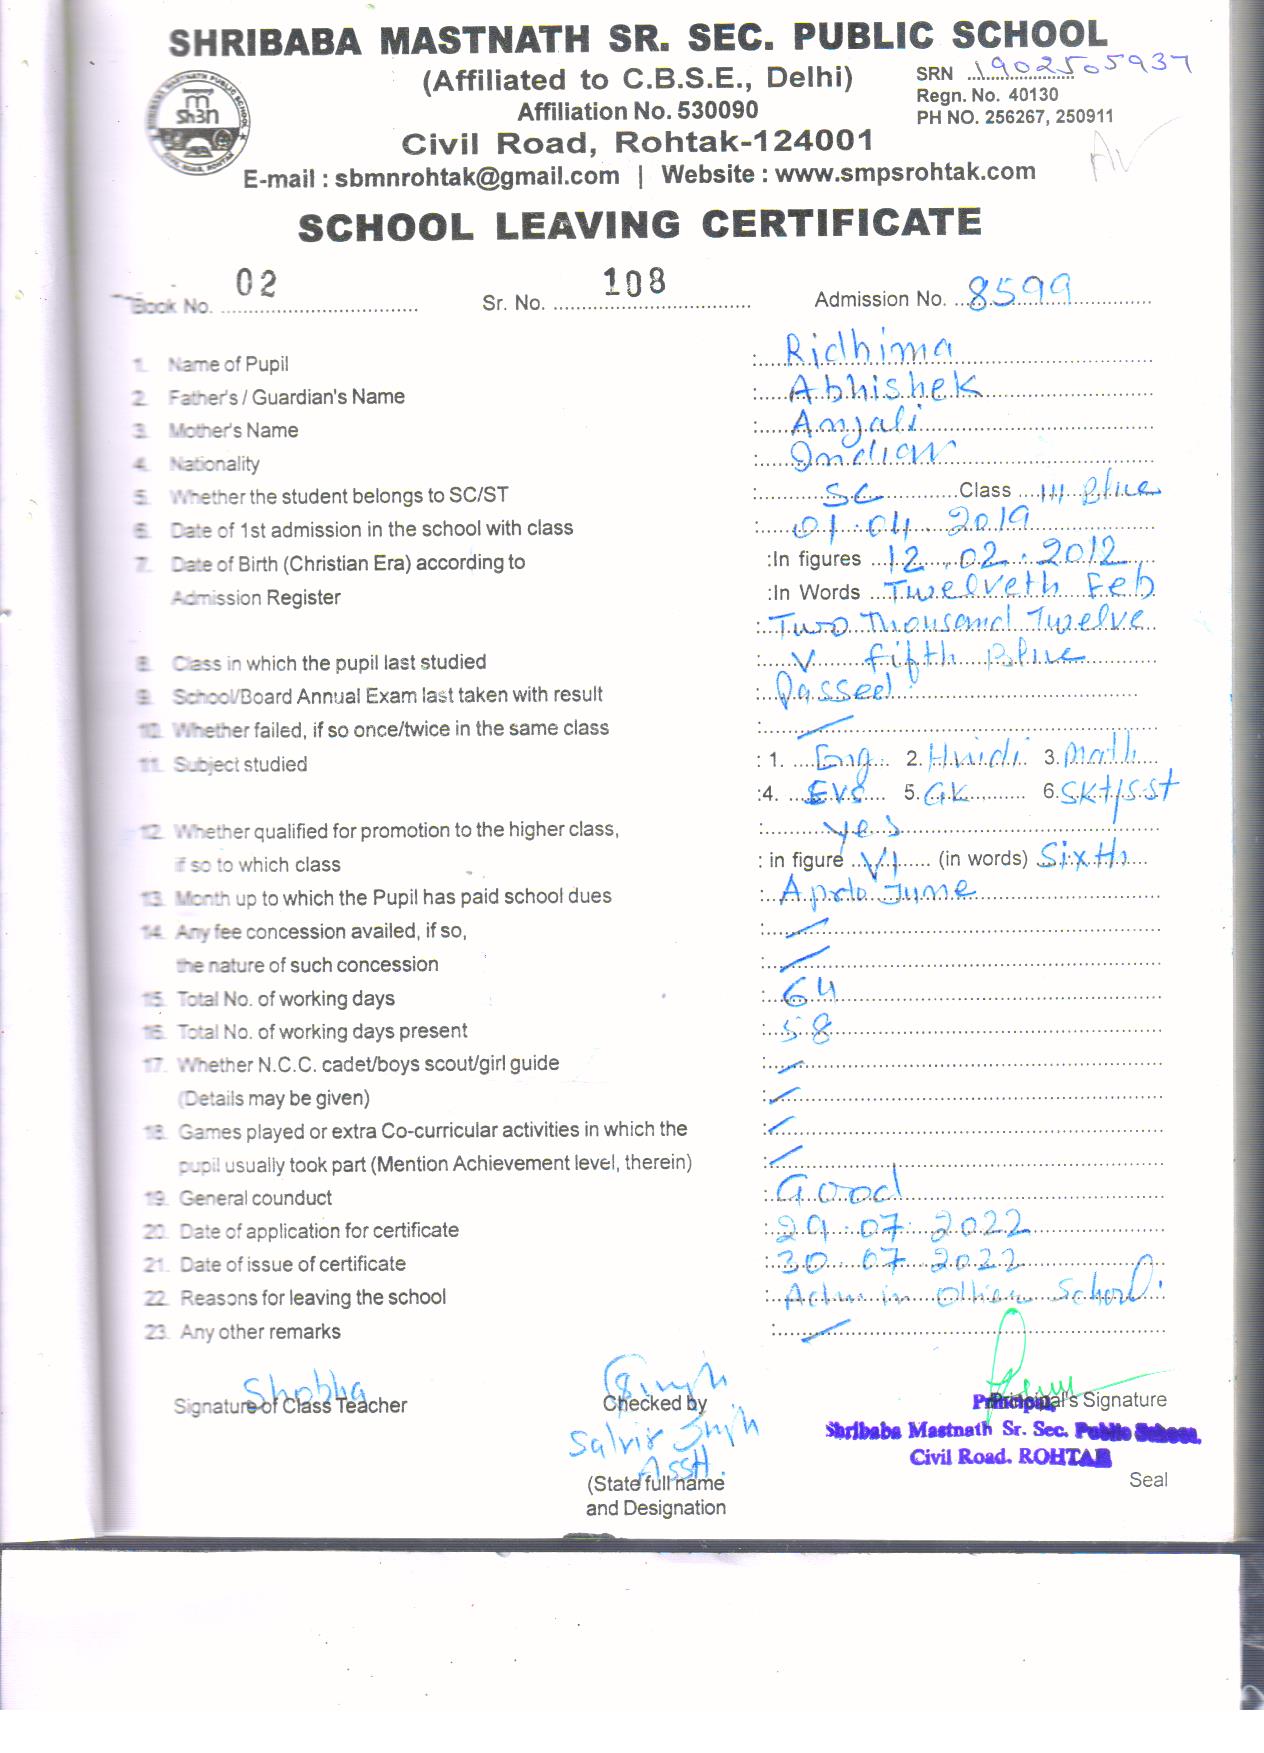 SHRIBABA MASTNATH SR. SEC. PUBLIC SCHOOL
(Affiliated to C.B.S.E., Delhi) SRN 1902505937
Affiliation No. 530090 Regn. No. 40130
PH NO. 256267, 250911
Civil Road, Rohtak-124001
E-mail : sbmnrohtak@gmail.com | Website : www.smpsrohtak.com
SCHOOL LEAVING CERTIFICATE
Book No. 02 Sr. No. 108 Admission No. 8599
1. Name of Pupil : Ridhima
2. Father's / Guardian's Name : Abhishek
3. Mother's Name : Anjali
4. Nationality : Indian
5. Whether the student belongs to SC/ST : SC Class III Blue
6. Date of 1st admission in the school with class : 01.04.2019
7. Date of Birth (Christian Era) according to :In figures 12.02.2012
Admission Register :In Words Twelveth Feb
: Two Thousand Twelve
8. Class in which the pupil last studied : V fifth Blue
9. School/Board Annual Exam last taken with result : Passed
10. Whether failed, if so once/twice in the same class :
11. Subject studied : 1. Eng. 2. Hindi 3. Math
:4. EVS 5. GK 6. SKt/S.St
12. Whether qualified for promotion to the higher class, : yes
if so to which class : in figure VI (in words) Sixth
13. Month up to which the Pupil has paid school dues : June
14. Any fee concession availed, if so, :
the nature of such concession :
15. Total No. of working days : 64
16. Total No. of working days present : 58
17. Whether N.C.C. cadet/boys scout/girl guide :
(Details may be given) :
18. Games played or extra Co-curricular activities in which the :
pupil usually took part (Mention Achievement level, therein) :
19. General counduct : Good
20. Date of application for certificate : 29.07.2022
21. Date of issue of certificate : 30.07.2022
22. Reasons for leaving the school : Adm in Other School
23. Any other remarks :
Shobha Singh
Signature of Class Teacher Checked by Principal's Signature
Principal
Shribaba Mastnath Sr. Sec. Public School
Civil Road. ROHTAK
Singh
(State full name Seal
and Designation